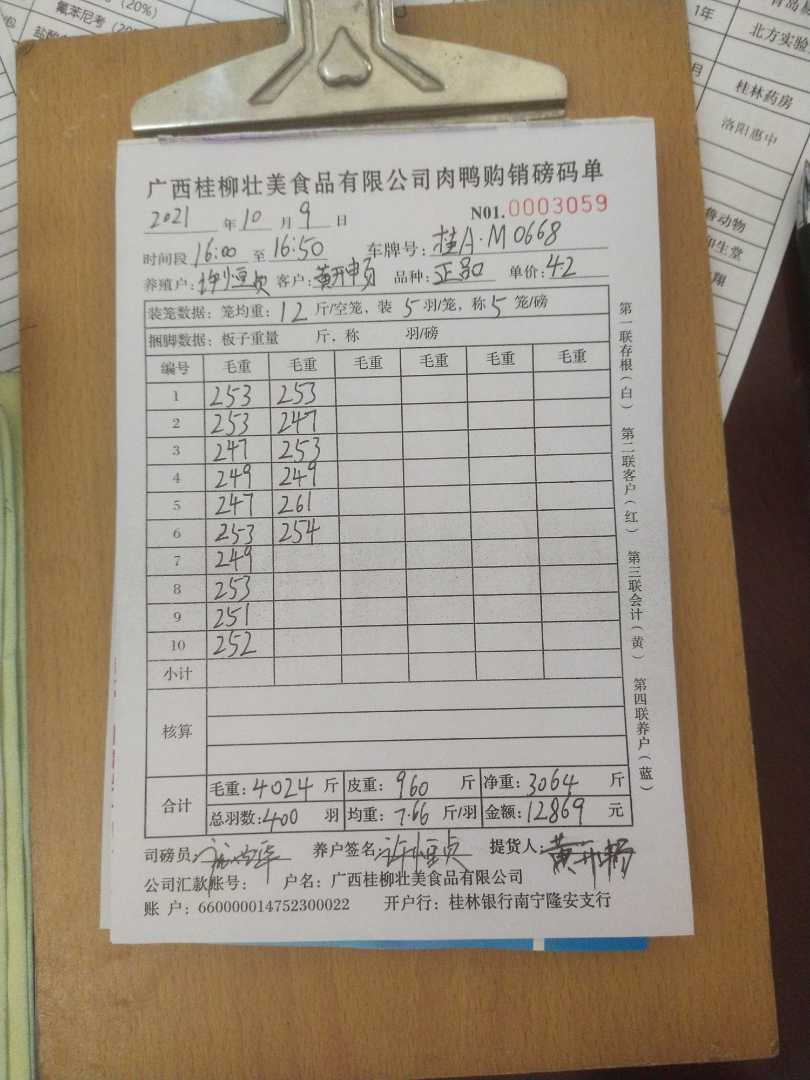 氟苯尼考（20%）
（20%）
1年
北方实验
月
桂林药房
洛阳惠中
鲁动物
和生堂
翔
广西桂柳壮美食品有限公司肉鸭购销磅码单
2021 年 10 月 9 日 N01.0003059
时间段 16:00 至 16:50 车牌号: 桂A·M0668
养殖户: 许恒贞 客户: 黄开旸 品种: 正品 单价: 4.2
装笼数据: 笼均重: 12 斤/空笼, 装 5 羽/笼, 称 5 笼/磅
捆脚数据: 板子重量 斤, 称 羽/磅
编号 毛重 毛重 毛重 毛重 毛重 毛重
1 253 253
2 253 247
3 247 253
4 249 249
5 247 261
6 253 254
7 249
8 253
9 251
10 252
小计
核算
合计 毛重: 4024 斤 皮重: 960 斤 净重: 3064 斤
总羽数: 400 羽 均重: 7.66 斤/羽 金额: 12869 元
司磅员: 养户签名: 许恒贞 提货人: 黄开旸
公司汇款账号: 户名: 广西桂柳壮美食品有限公司
账 户: 660000014752300022 开户行: 桂林银行南宁隆安支行
第一联存根（白） 第二联客户（红） 第三联会计（黄） 第四联养户（蓝）